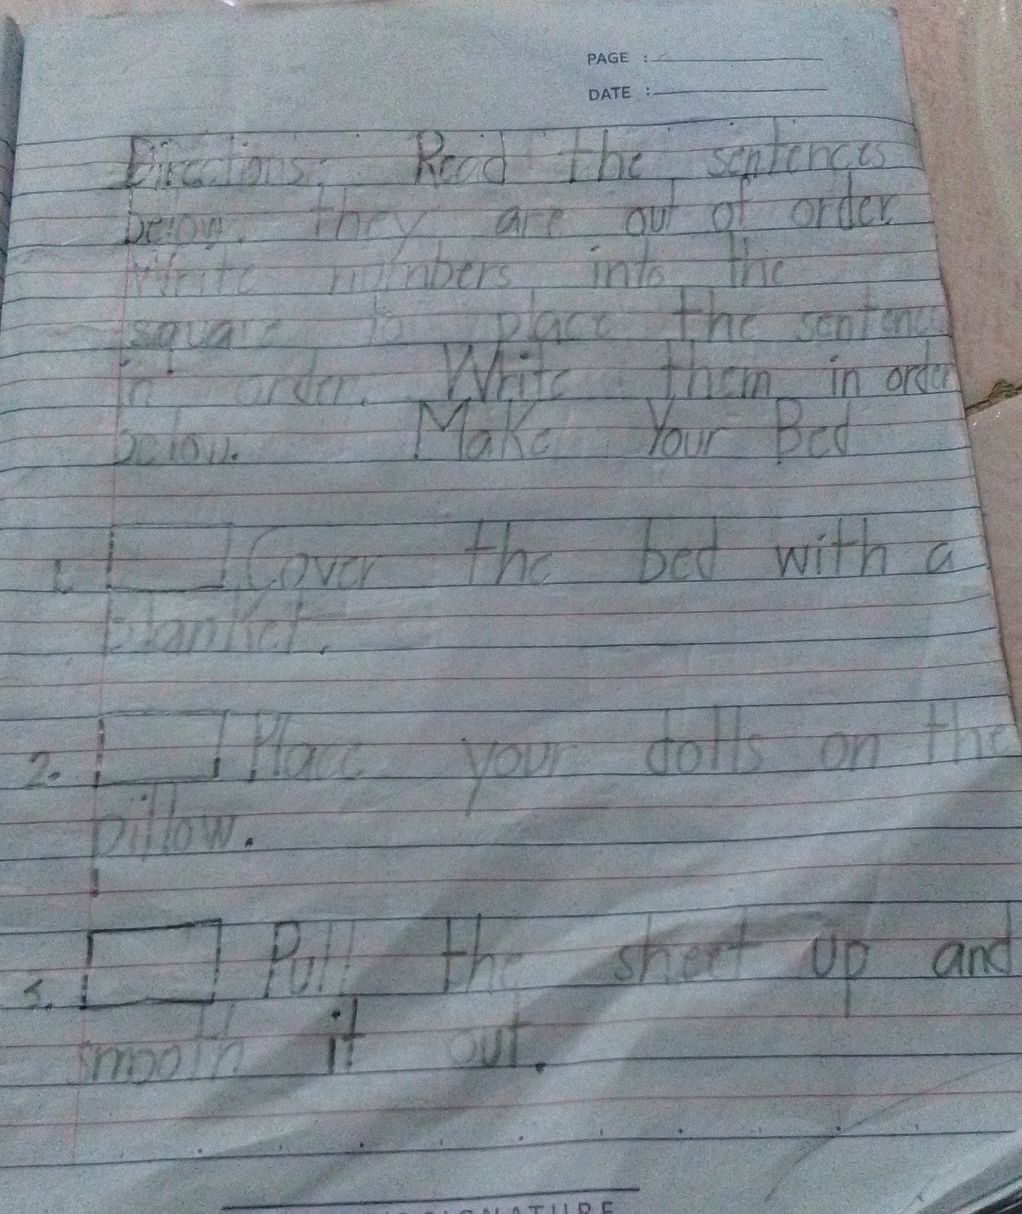 PAGE :
DATE :
Directions: Read the sentences
below. They are out of order.
Write numbers into the
square to place the sentence
in order. Write them in order
below. Make Your Bed
1. Cover the bed with a
blanket.
2. Place your dolls on the
pillow.
3. Pull the sheet up and
smooth it out.
SIGNATURE